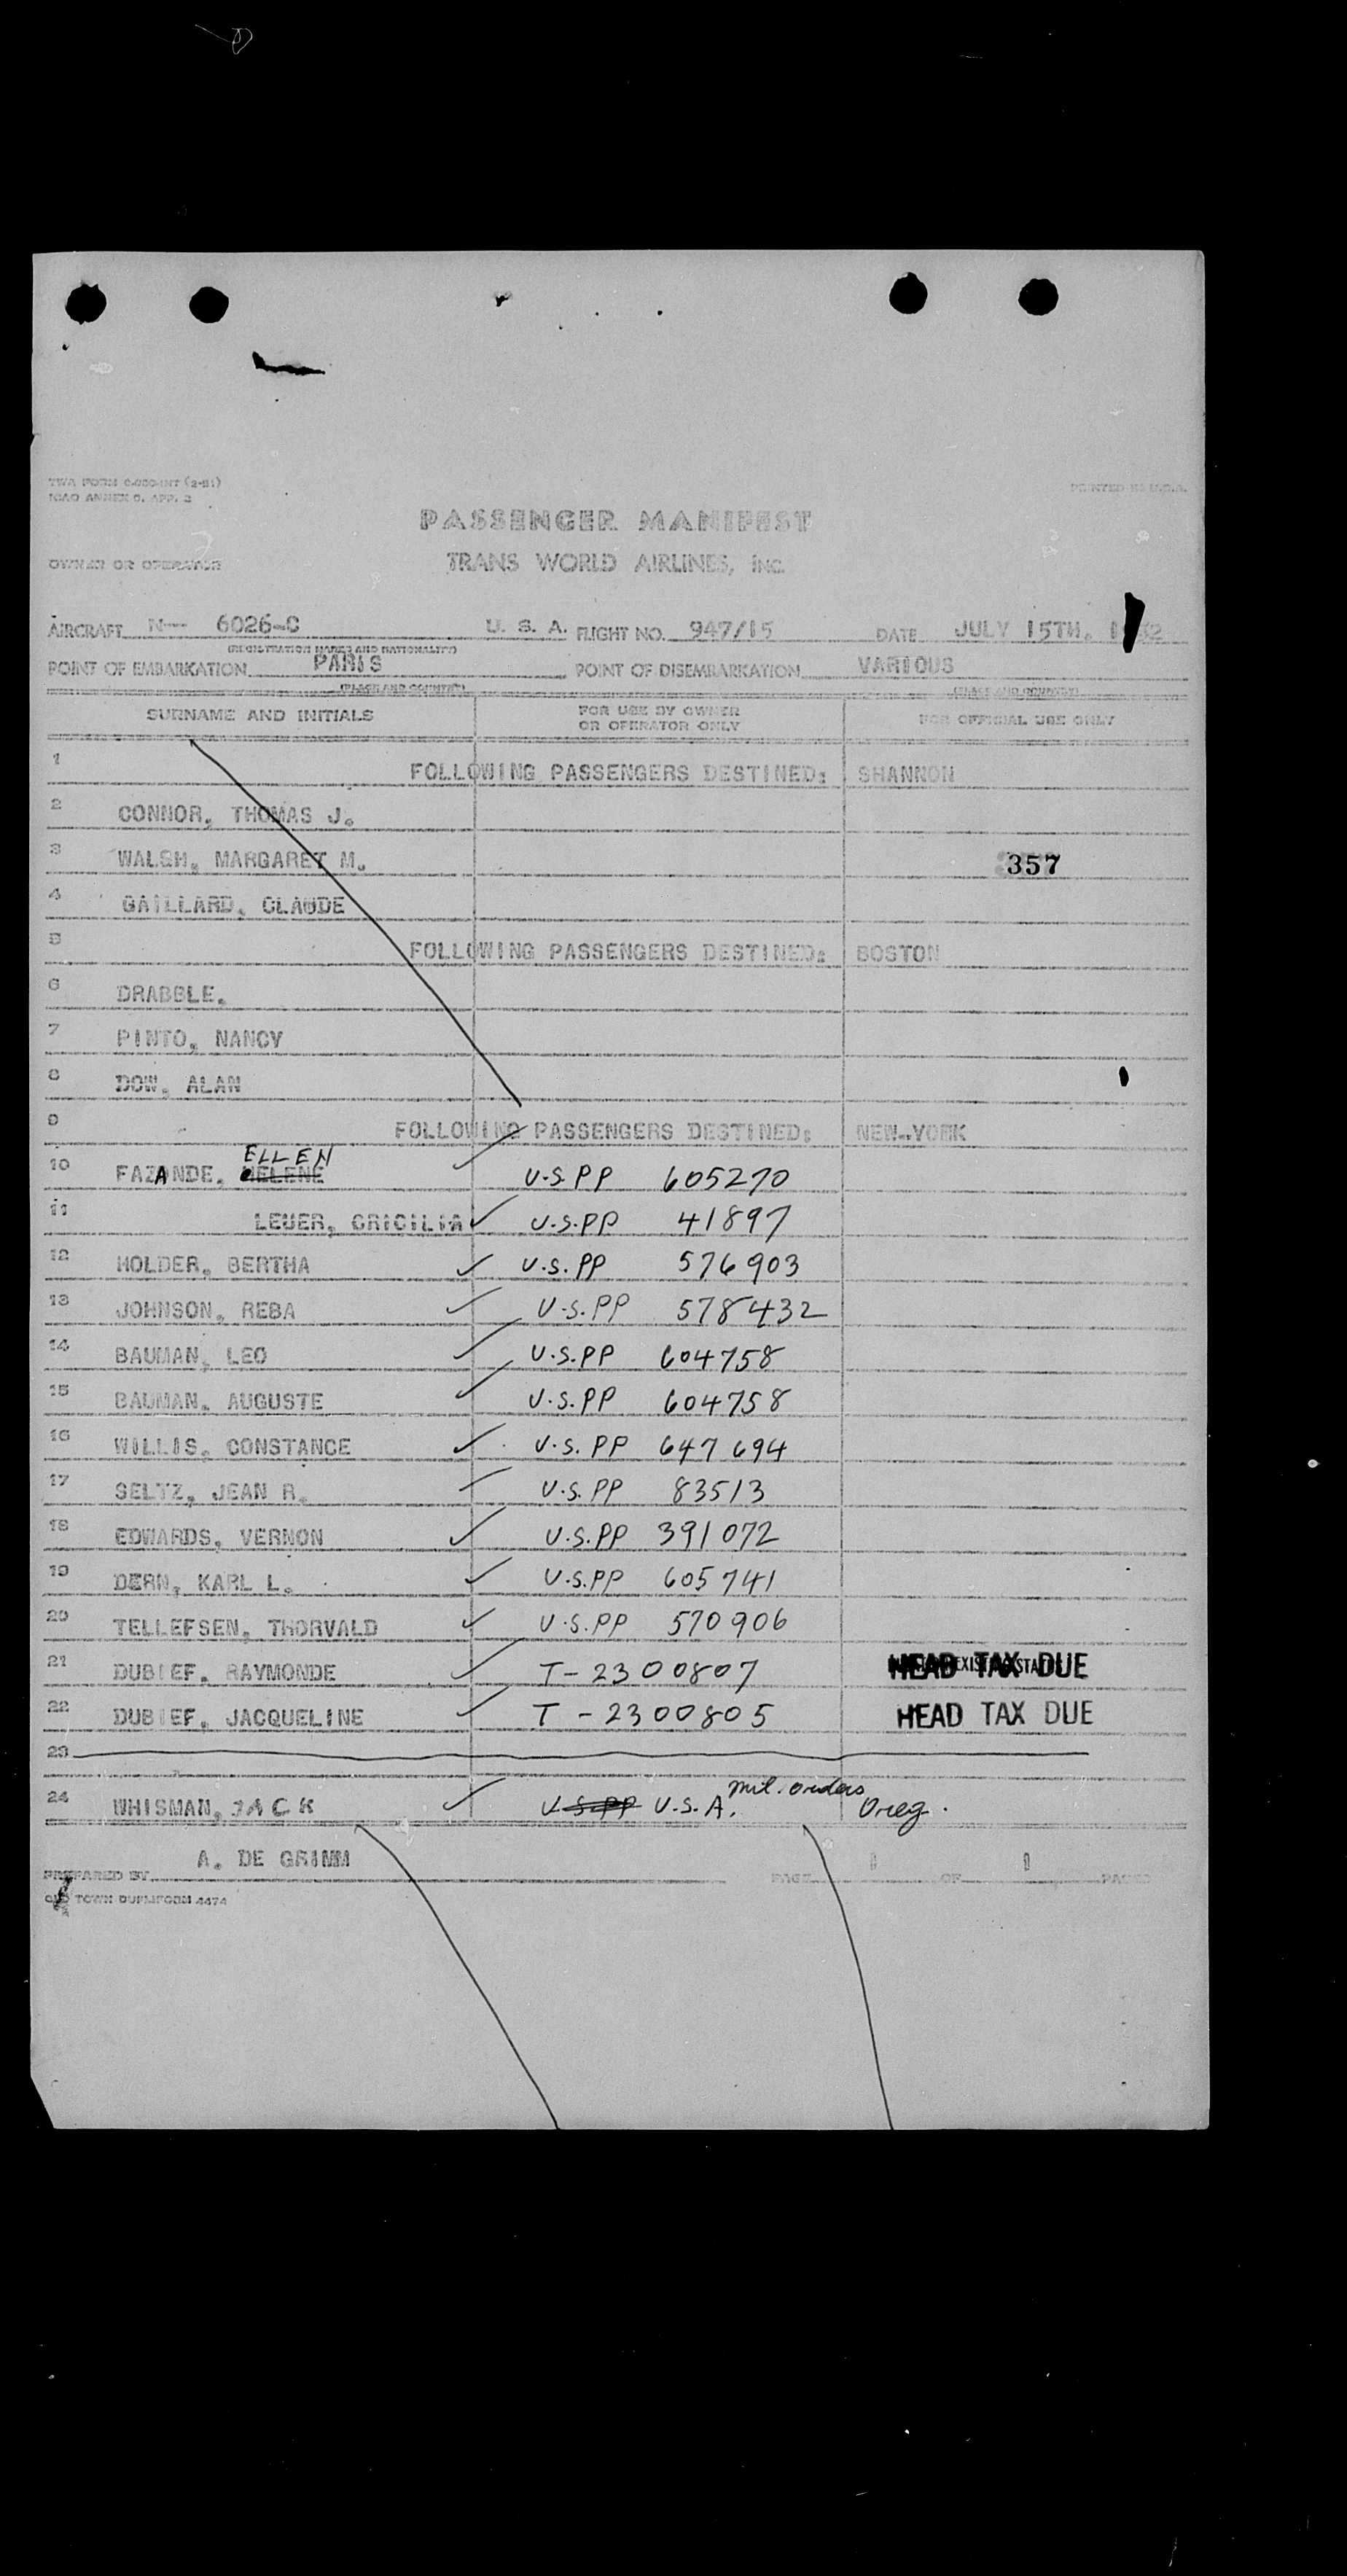 TWA FORM 0.050-INT (2-51)
ICAO ANNEX 9, APP. 2
PRINTED IN U.S.A.
PASSENGER MANIFEST
OWNER OR OPERATOR TRANS WORLD AIRLINES, INC.
AIRCRAFT N-- 6026-C U. S. A. FLIGHT NO. 947/15 DATE JULY 15TH.
(REGISTRATION MARKS AND NATIONALITY)
POINT OF EMBARKATION PARIS POINT OF DISEMBARKATION VARIOUS
(PLACE AND COUNTRY) (PLACE AND COUNTRY)
SURNAME AND INITIALS FOR USE BY OWNER OR OPERATOR ONLY FOR OFFICIAL USE ONLY
1 FOLLOWING PASSENGERS DESTINED: SHANNON
2 CONNOR, THOMAS J.
3 WALSH, MARGARET M. 357
4 GAILLARD, CLAUDE
5 FOLLOWING PASSENGERS DESTINED: BOSTON
6 DRABBLE.
7 PINTO, NANCY
8 DOW, ALAN
9 FOLLOWING PASSENGERS DESTINED: NEW-YORK
ELLEN
10 FAZANDE, HELENE U.S.PP 605270
11 LEUER, CRICILIA ✓ U.S.PP 41897
12 HOLDER, BERTHA ✓ U.S.PP 576903
13 JOHNSON, REBA ✓ U.S.PP 578432
14 BAUMAN, LEO ✓ U.S.PP 604758
15 BAUMAN, AUGUSTE ✓ U.S.PP 604758
16 WILLIS, CONSTANCE ✓ U.S.PP 647694
17 SELTZ, JEAN R. ✓ U.S.PP 83513
18 EDWARDS, VERNON ✓ U.S.PP 391072
19 DERN, KARL L. ✓ U.S.PP 605741
20 TELLEFSEN, THORVALD ✓ U.S.PP 570906
21 DUBIEF, RAYMONDE ✓ T-2300807 HEAD TAX DUE
22 DUBIEF, JACQUELINE ✓ T-2300805 HEAD TAX DUE
23
mil. orders
24 WHISMAN, JACK ✓ U.S.PP U.S.A. Oreg.
PREPARED BY A. DE GRIMM PAGE 1 OF 1 PAGES
OLD TOWN DUPLIFORM 4474